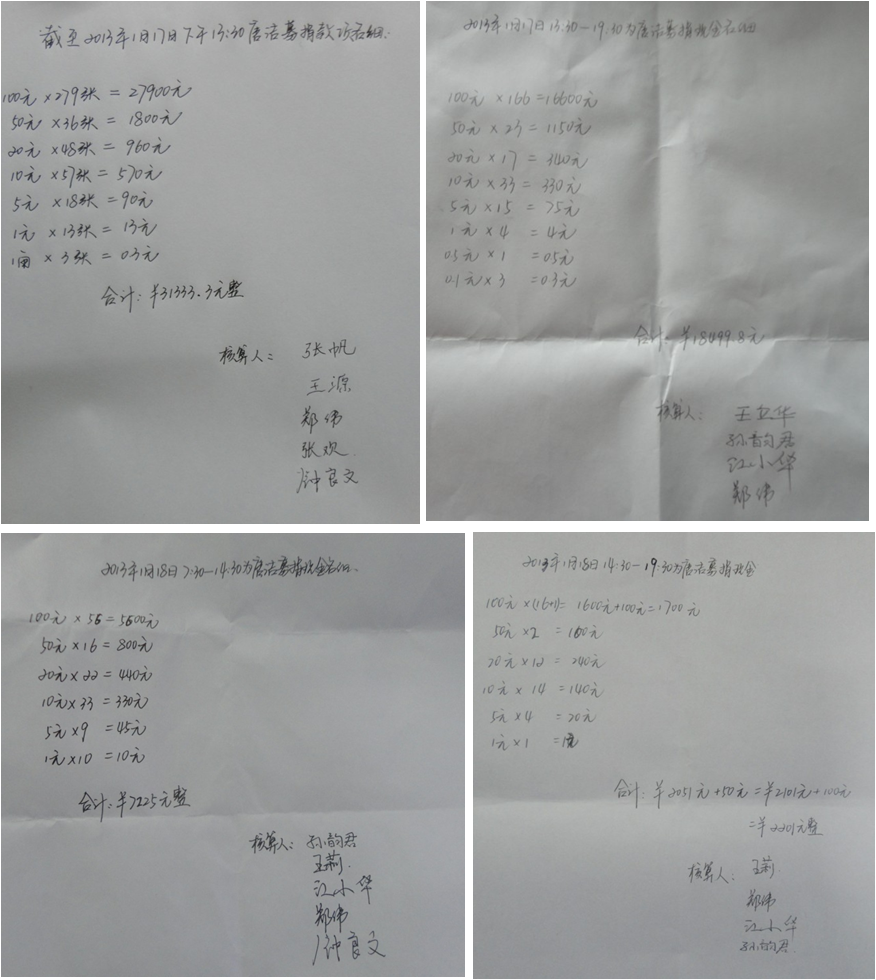 截至2013年1月17日下午13:30唐洁募捐款项名细:
100元 ×279张 = 27900元
50元 ×36张 = 1800元
20元 ×48张 = 960元
10元 ×57张 = 570元
5元 ×18张 = 90元
1元 ×13张 = 13元
1角 × 3张 = 0.3元
合计:¥31333.3元整
核算人: 张帆
王源
郑伟
张欢
钟良文
2013年1月17日13:30-19:30为唐洁募捐现金名细
100元 ×166 =16600元
50元 × 23 = 1150元
20元 × 17 = 340元
10元 × 33 = 330元
5元 × 15 = 75元
1元 × 4 = 4元
0.5元 × 1 =0.5元
0.1元 × 3 =0.3元
合计:¥18499.8元
核算人: 王卫华
孙韵君
江小华
郑伟
2013年1月18日7:30-14:30为唐洁募捐现金名细.
100元 × 56 = 5600元
50元 × 16 = 800元
20元 × 22 = 440元
10元 × 33 = 330元
5元 × 9 = 45元
1元 × 10 = 10元
合计:¥7225元整
核算人: 孙韵君
王莉.
江小华
郑伟
钟良文
2013年1月18日14:30-19:30为唐洁募捐现金
100元 ×(16+1)= 1600元+100元=1700元
50元 ×2 = 100元
20元 × 12 = 240元
10元 × 14 = 140元
5元 × 4 = 20元
1元 × 1 =1元
合计:¥2051元+50元=¥2101元+100元
=¥2201元整
核算人: 王莉.
郑伟
江小华
孙韵君.